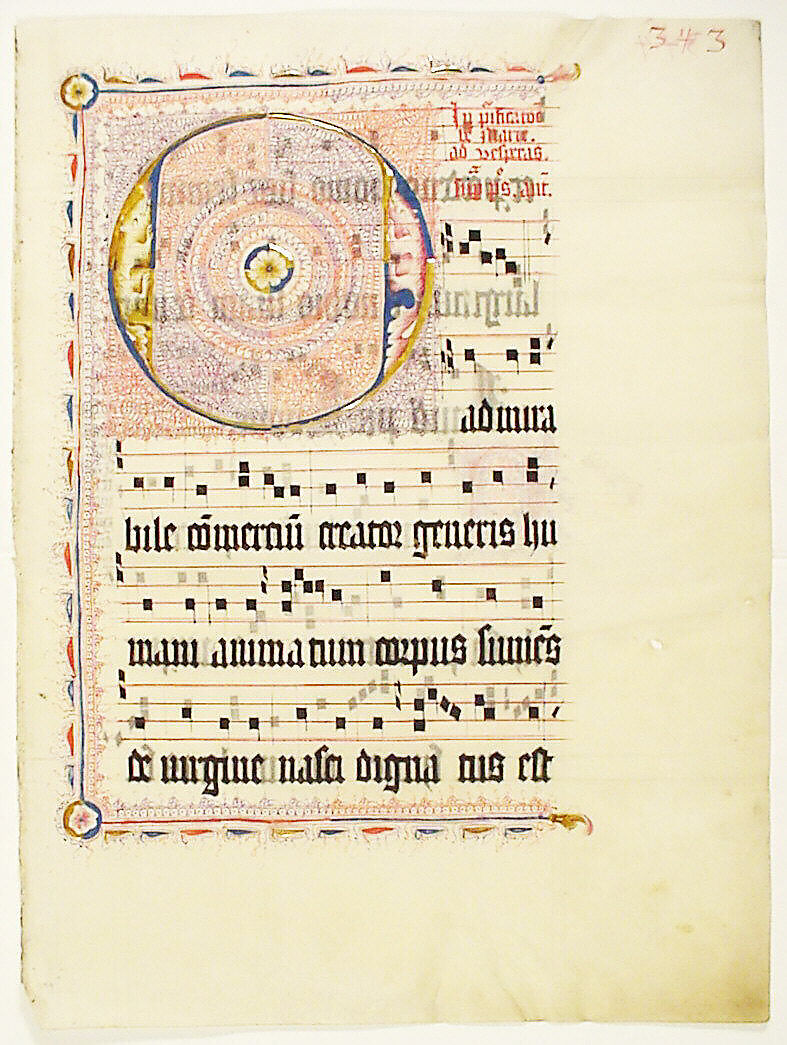 343
In pīficatoē
be Marie.
ad vesperas.
O
admira
bile cōmerciū creator generis hu
mani animatum corpus sumēs
de virgine nasci digna tus est